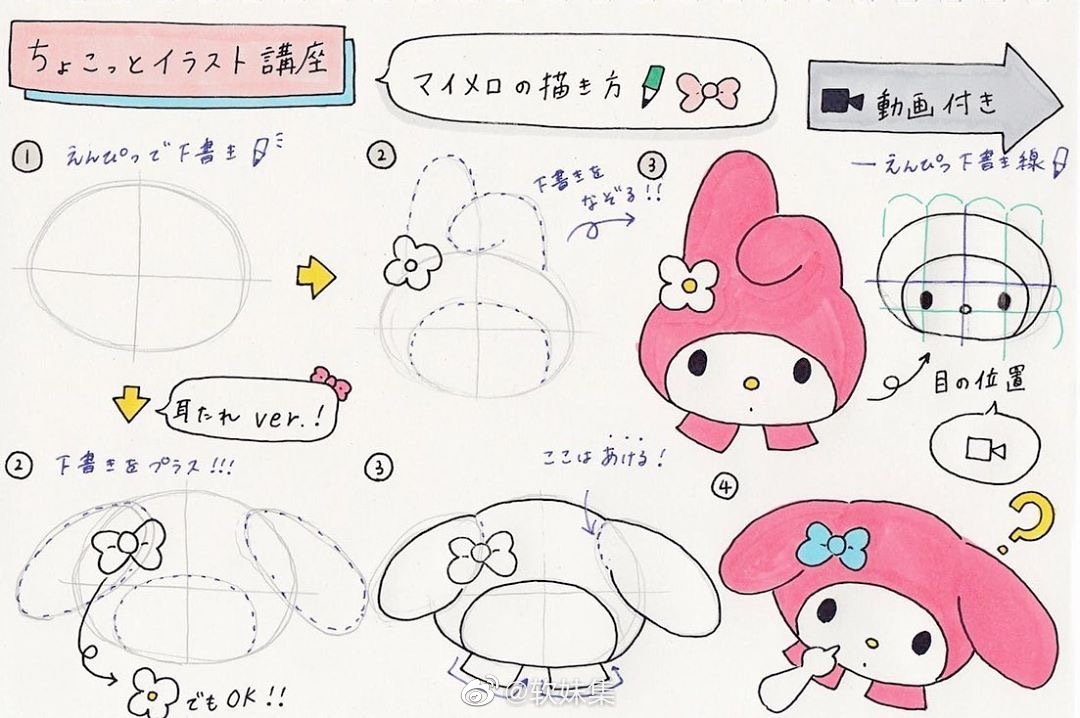 ちょこっとイラスト講座
マイメロの描き方
動画付き
① えんぴつで下書き
②
下書きを
なぞる!!
③
ーえんぴつ下書き線
目の位置
耳たれ ver.!
② 下書きをプラス!!!
でもOK!!
③
ここはあける!
④
@软妹集